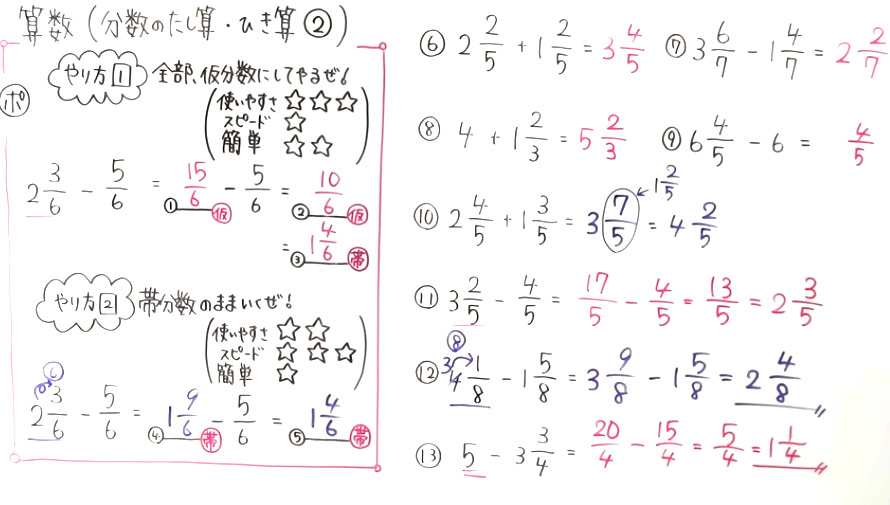 算数(分数のたし算・ひき算②)
ポ
やり方1 全部、仮分数にしてやるぜ!
使いやすさ ☆☆☆
スピード ☆
簡単 ☆☆
2 3/6 - 5/6 = 15/6 - 5/6 = 10/6
① 仮 ② 仮
= 1 4/6
③ 帯
やり方2 帯分数のままいくぜ!
使いやすさ ☆☆
スピード ☆☆☆
簡単 ☆
6
2 3/6 - 5/6 = 1 9/6 - 5/6 = 1 4/6
④ 帯 ⑤ 帯
⑥ 2 2/5 + 1 2/5 = 3 4/5
⑦ 3 6/7 - 1 4/7 = 2 2/7
⑧ 4 + 1 2/3 = 5 2/3
⑨ 6 4/5 - 6 = 4/5
1 2/5
⑩ 2 4/5 + 1 3/5 = 3 7/5 = 4 2/5
⑪ 3 2/5 - 4/5 = 17/5 - 4/5 = 13/5 = 2 3/5
3 8
⑫ 4 1/8 - 1 5/8 = 3 9/8 - 1 5/8 = 2 4/8
⑬ 5 - 3 3/4 = 20/4 - 15/4 = 5/4 = 1 1/4